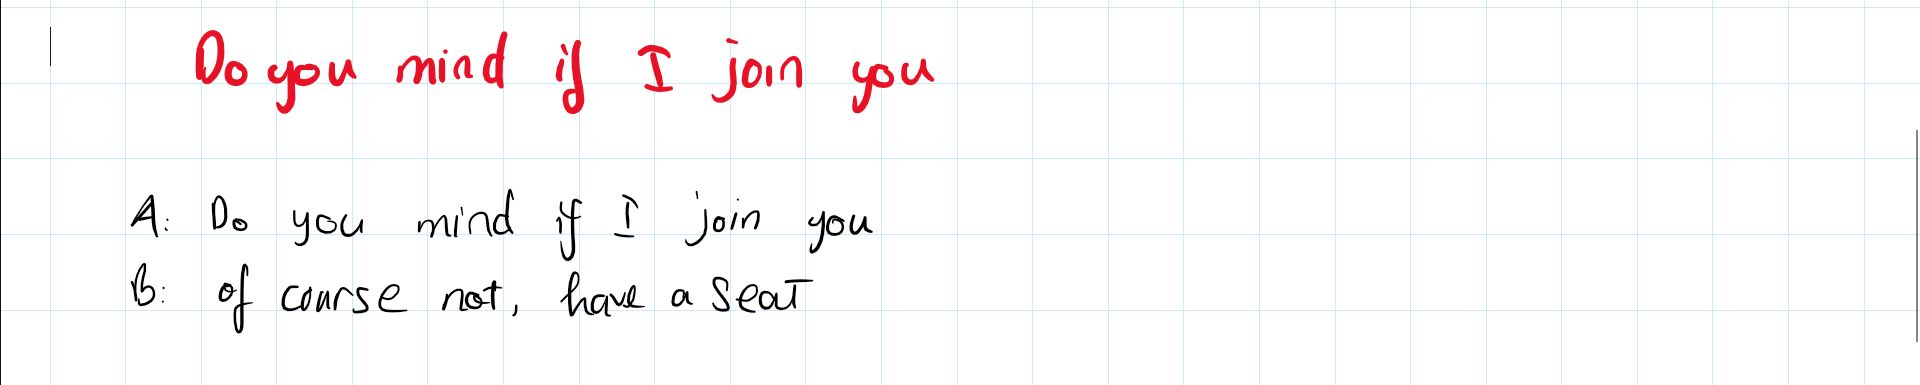 Do you mind if I join you
A: Do you mind if I join you
B: of course not, have a seat